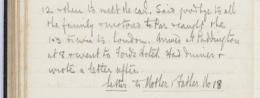 12 & then to meet the car. Said goodbye to all
the family & motored to Par & caught the
1.3 train to London. Arrived at Paddington
at 8 & went to Ford's Hotel. Had dinner &
wrote a letter after.
letter to Mother/Father No 18